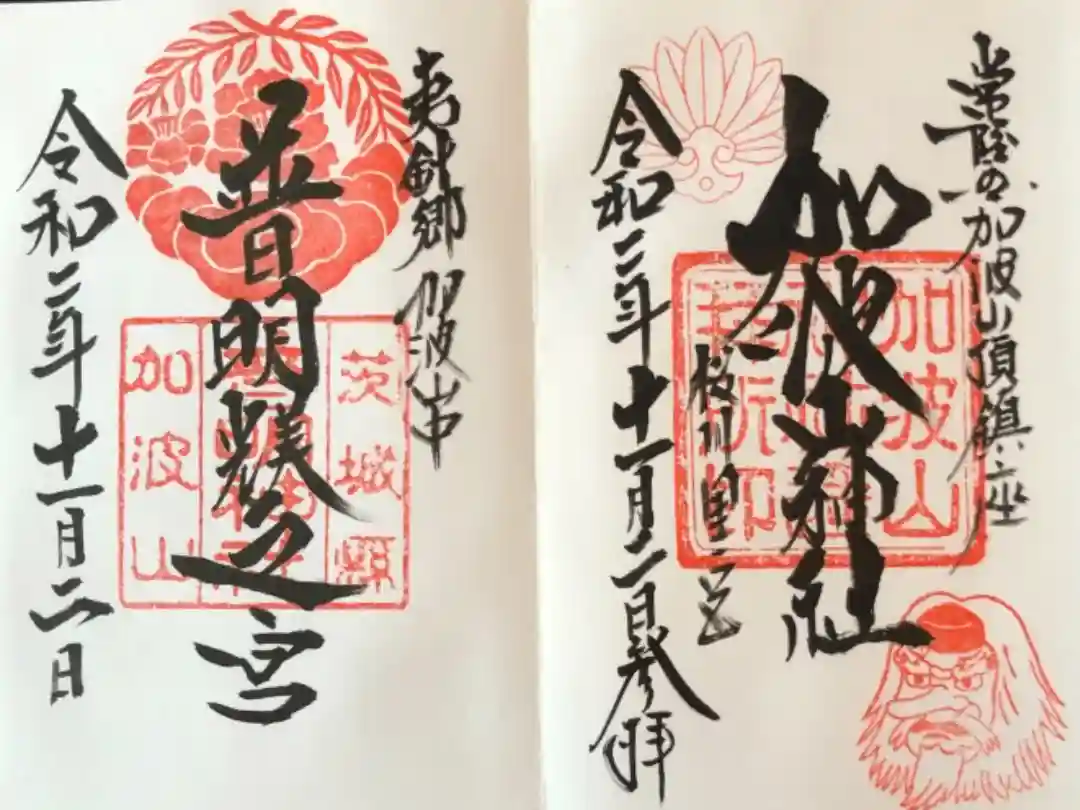 常陸の加波山頂鎮座
加波山神社
桜川里宮
令和二年十一月二日奉拝
加波山
夷針郷 波山中
普明 之宮
令和二年十一月二日
茨城縣
加波山